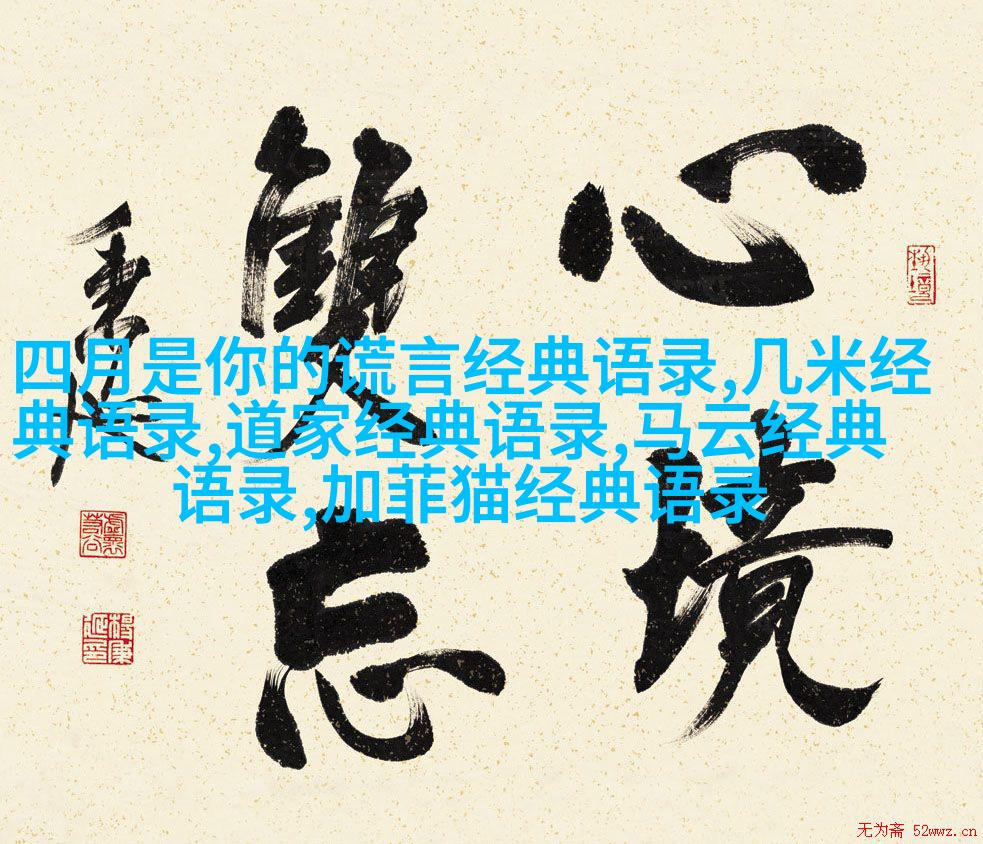 心境
雙忘
四月是你的谎言经典语录,几米经
典语录,道家经典语录,马云经典
语录,加菲猫经典语录
无为斋 52wwz.cn